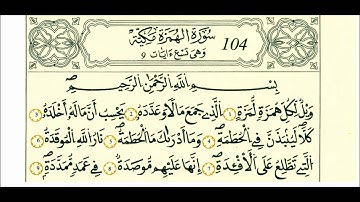 سُورَةُ الْهُمَزَةِ مَكِّيَّةٌ 104
وَهِيَ تِسْعُ ءَايَاتٍ 9
بِسْمِ اللَّهِ الرَّحْمَٰنِ الرَّحِيمِ
وَيْلٌ لِّكُلِّ هُمَزَةٍ لُّمَزَةٍ ١ الَّذِي جَمَعَ مَالًا وَعَدَّدَهُ ٢ يَحْسِبُ أَنَّ مَالَهُ أَخْلَدَهُ ٣
كَلَّا لَيُنبَذَنَّ فِي الْحُطَمَةِ ٤ وَمَا أَدْرَىٰكَ مَا الْحُطَمَةُ ٥ نَارُ اللَّهِ الْمُوقَدَةُ ٦
الَّتِي تَطَّلِعُ عَلَى الْأَفْـِٔدَةِ ٧ إِنَّهَا عَلَيْهِم مُّوصَدَةٌ ٨ فِي عَمَدٍ مُّمَدَّدَةٍ ٩